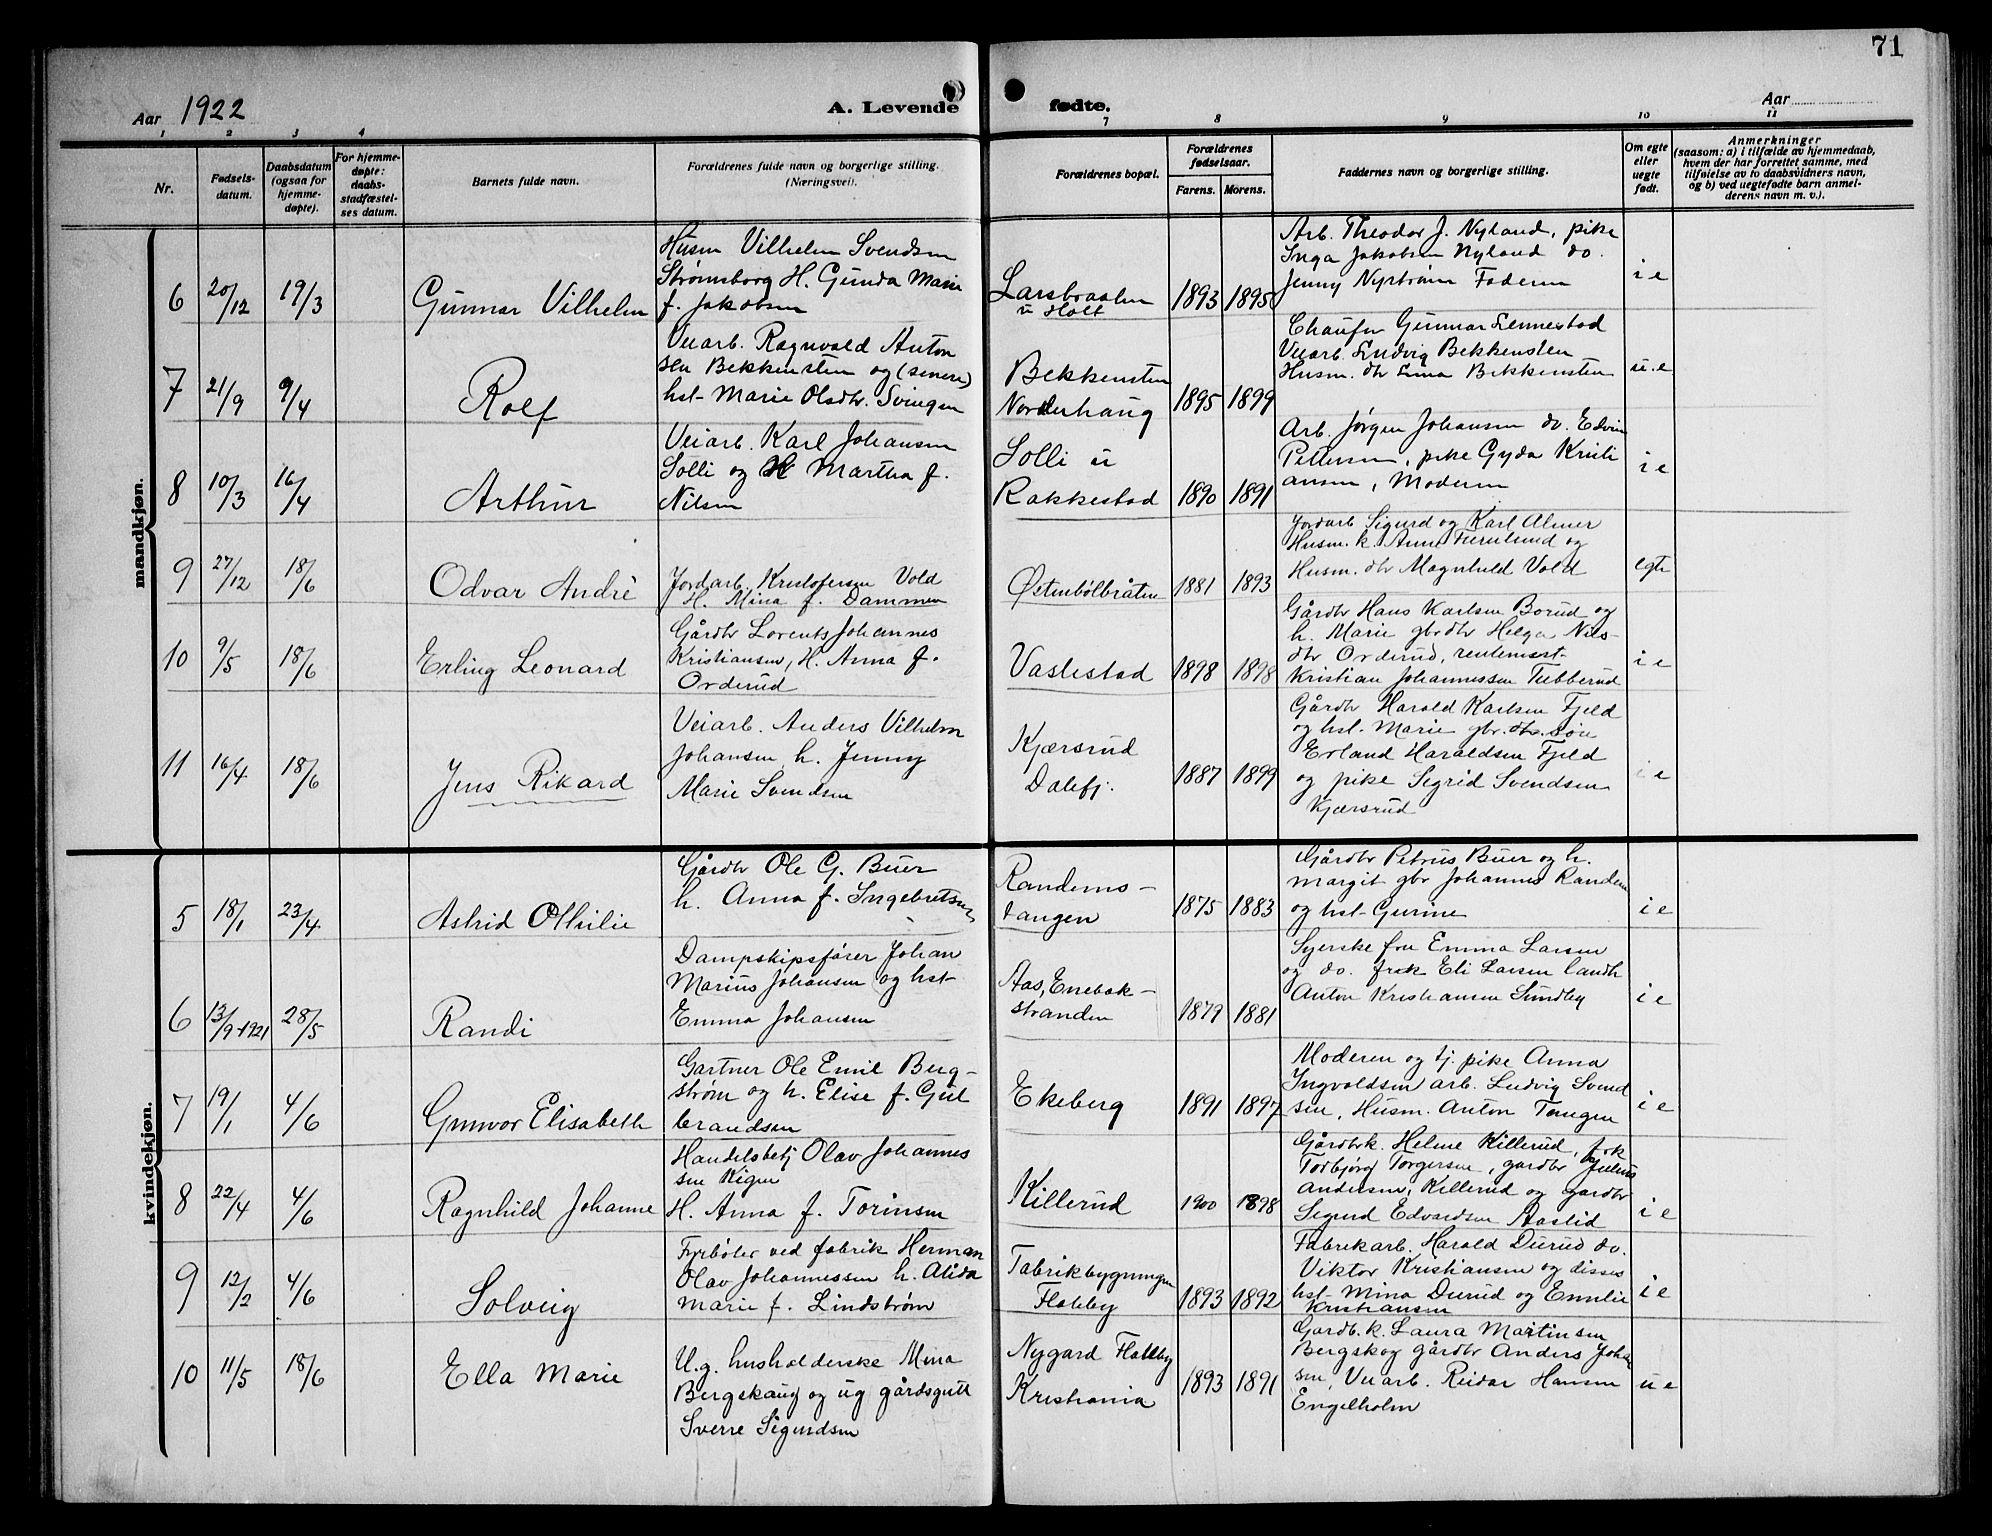 71
Aar 1922
A. Levende fødte.
Aar
1 2 3 4 7 8 9 10 11
Nr.
Fødsels-
datum.
Daabsdatum
(ogsaa for
hjemme-
døpte).
For hjemme-
døpte:
daabs-
stadfæstel-
ses datum.
Barnets fulde navn.
Forældrenes fulde navn og borgerlige stilling.
(Næringsvei).
Forældrenes bopæl.
Forældrenes
fødselsaar.
Farens. Morens.
Faddernes navn og borgerlige stilling.
Om egte
eller
uegte
født.
Anmerkninger
(saasom: a) i tilfælde av hjemmedaab,
hvem der har forrettet samme, med
tilføielse av to daabsvidners navn,
og b) ved uegtefødte barn anmel-
derens navn m. v.).
mandkjøn.
6 20/12 19/3 Gunnar Vilhelm
Husm Vilhelm Svendsen
Strømsborg H. Gunda Marie
f. Jakobsen
Larsbraaten
u Holt
1893 1895
Arb. Theodor J. Nyland, pike
Inga Jakobsen Nyland do.
Jenny Nyström Faderen
i e
7 21/9 9/4 Rolf
Veiarb. Ragnvald Anton
sen Bekkensten og (senere)
hst- Marie Olsdtr. Svingen
Bekkensten
Norderhaug
1895 1899
Chaufør Gunnar Lennestad
Veiarb. Ludvig Bekkensten
Husm. dtr Lina Bekkensten
u. e
8 10/3 16/4 Arthur
Veiarb. Karl Johansen
Solli og H Martha f.
Nilsen
Solli u
Rakkestad
1890 1891
Arb. Jørgen Johansen do. Edvin
Pettersen, pike Gyda Kristi
ansen, Moderen
i e
9 27/12 18/6 Odvar André
Jordarb. Kristofersen Vold
H. Mina f. Dammen
Østenbölbråten
1881 1893
Jordarb Sigurd og Karl Almer
Husm. k. Anne Furulund og
Husm. dtr Magnhild Vold
egte
10 9/5 18/6 Erling Leonard
Gårdbr Lorents Johannes
Kristiansen, H. Anna f.
Orderud
Vastestad
1898 1898
Gårdbr Hans Karlsen Borud og
h. Marie gbrdtr Helga Nils-
dtr Orderud, rentemest-
Kristian Johannessen Tubberud
i e
11 16/4 18/6 Jens Rikard
Veiarb. Anders Vilhelm
Johansen h. Jenny
Marie Svendsen
Kjærsrud
Dalefj.
1887 1899
Gårdbr Harald Karlsen Fjeld
og hst. Marie gbr. dtr. søn
Erland Haraldsen Fjeld
og pike Sigrid Svendsen
Kjærsrud
i e
kvindekjøn.
5 18/1 23/4 Astrid Othilie
Gårdbr Ole G. Buer
h. Anna f. Ingebretsen
Randems-
tangen
1875 1883
Gårdbr Petrus Buer og h.
Margit gbr Johannes Randem
og hst- Gurine
i e
6 13/9-1921 28/5 Randi
Dampskipsfører Johan
Marius Johansen og hst-
Emma Johansen
Aas, Enebak-
stranden
1879 1881
Syerske fru Emma Larsen
og do. frøk Eli Larsen landh
Anton Kristiansen Sundby
i e
7 19/1 4/6 Gunvor Elisabeth
Gartner Ole Emil Berg-
strøm og h. Elise f. Gul
brandsen
Ekeberg
1891 1897
Moderen og tj. pike Anna
Ingvoldsen arb. Ludvig Svend
sen, Husm. Anton Tangen
i e
8 22/4 4/6 Ragnhild Johanne
Handelsbetj Olav Johannes
sen Rigen
H. Anna f. Torinsen
Killerud
1900 1898
Gårdbrk. Helene Killerud, frk
Torbjørg Torgersen, gardbr Julius
Andersen, Killerud og gardbr
Sigurd Edvardsen Aaslid
i e
9 12/2 4/6 Solveig
Fyrbøter ved fabrik Herman
Olav Johannessen h. Alida
Marie f. Lindstrøm
Fabrikbygningen
Flateby
1893 1892
Fabrikarb. Harald Durud do.
Viktor Kristiansen og disses
hst- Mina Durud og Emilie
Kristiansen
i e
10 11/5 18/6 Ella Marie
U.g. husholderske Mina
Bergskaug og ug gårdsgutt
Sverre Sigurdsen
Nygard Flateby
Kristiania
1893 1891
Gardb. k. Laura Martinsen
Bergskog gårdbr Anders Johan
sen, Veiarb. Reidar Hansen
Engelholm
u e